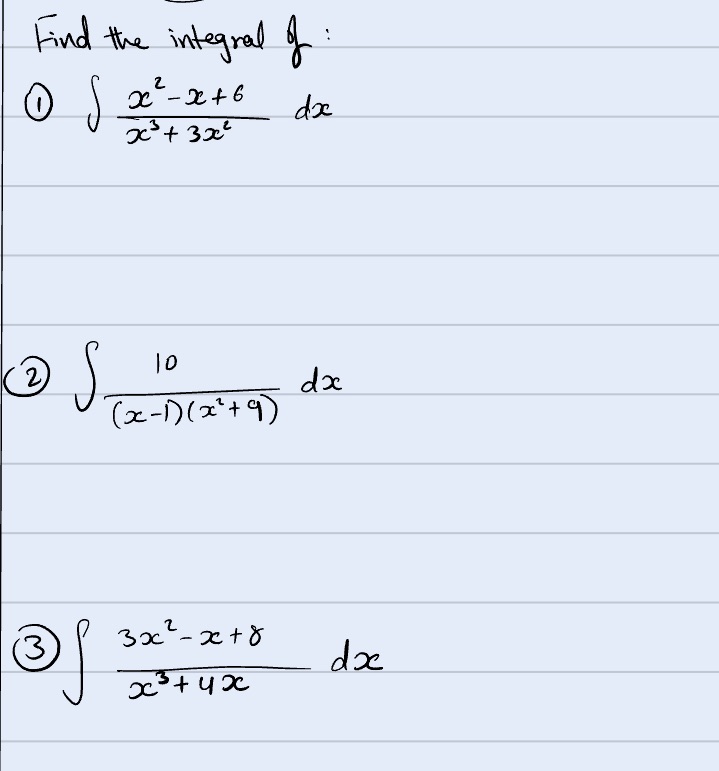 Find the integral of :
① ∫ x² - x + 6 / x³ + 3x² dx
② ∫ 10 / (x-1)(x²+9) dx
③ ∫ 3x² - x + 8 / x³ + 4x dx